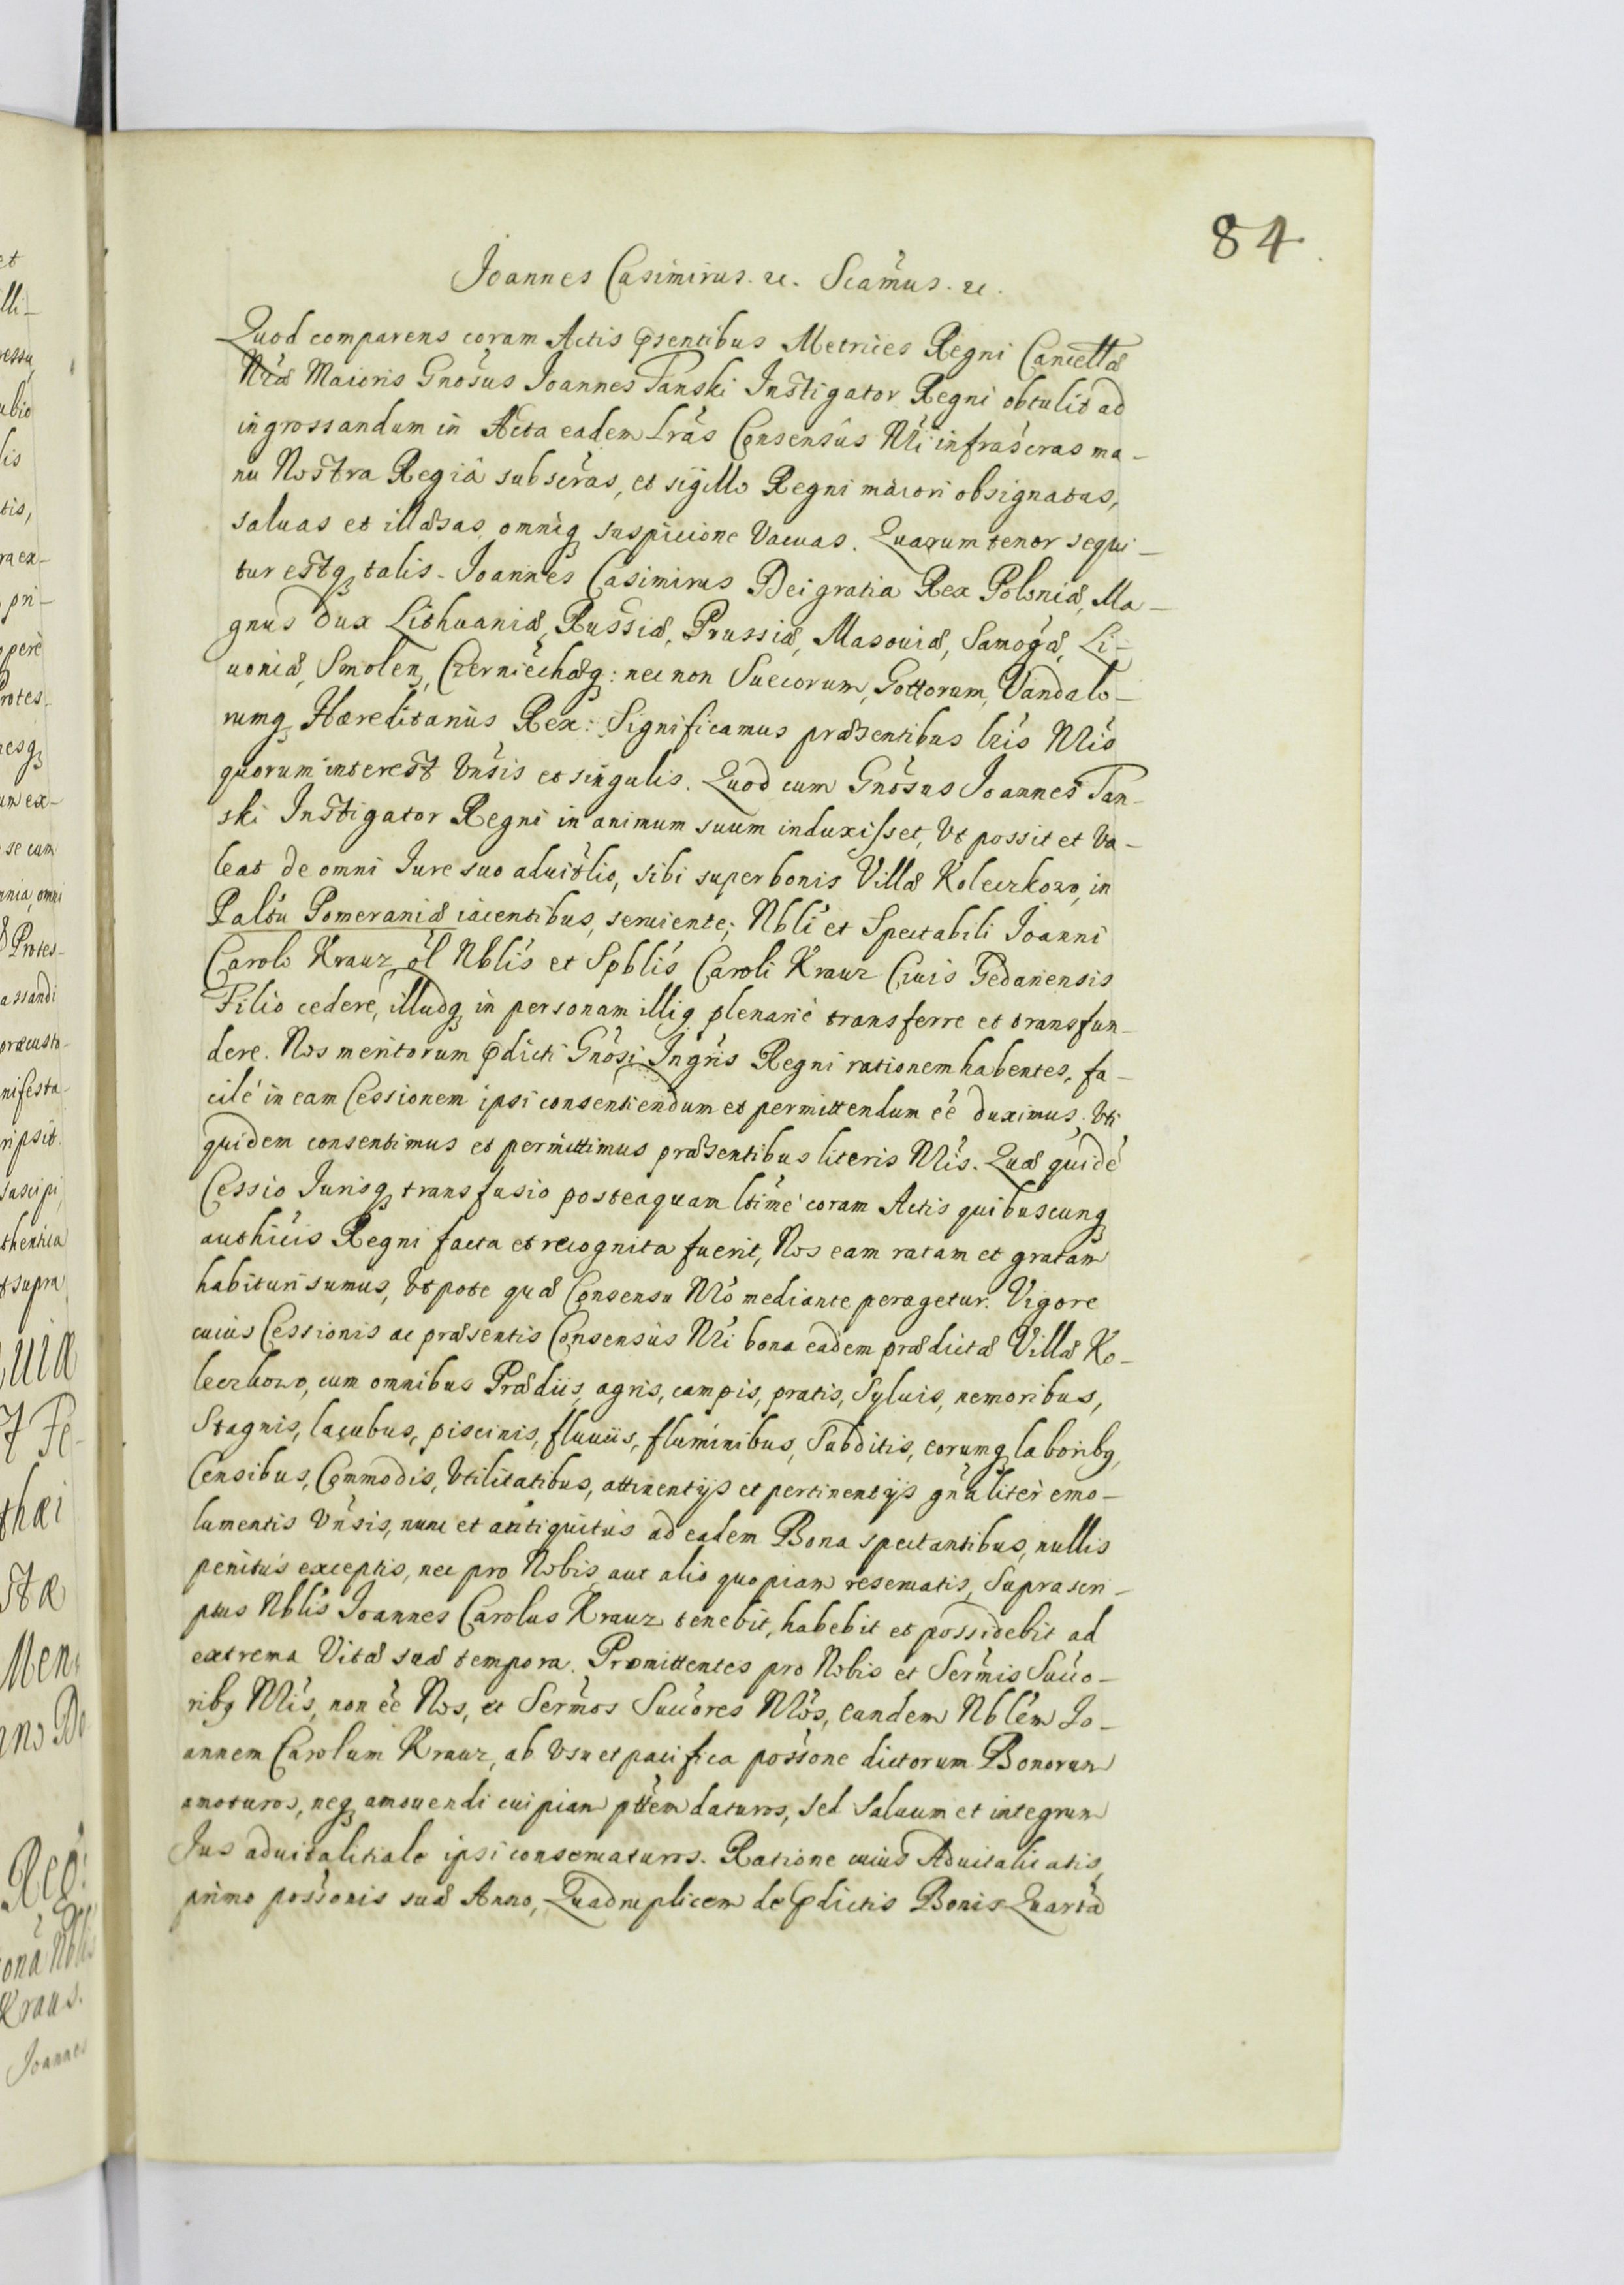 84.
Joannes Casimirus. &c. Sca͂mus. &c.
Quod comparens coram Actis p̃sentibus Metrices Regni Cancellæ
Nr̃æ Maioris Gnõsus Joannes Tanski Instigator Regni obtulit ad
ingrossandum in Acta eadem Lrãs Consensûs Nr̃i infrascr̃as ma-
nu Nostra Regiâ subscr̃as, et sigillo Regni maiori obsignatas,
saluas et illæsas omniq; suspicione Vacuas. Quarum tenor sequi-
tur estq; talis. Joannes Casimirus Dei gratia Rex Poloniæ, Ma-
gnus Dux Lithuaniæ, Russiæ, Prussiæ, Masouiæ, Samog̃æ, Li-
uoniæ, Smolen, Czerniechæq: nec non Suecorum, Gottorum, Vandalo-
rumq; Hæreditarius Rex: Significamus præsentibus lrĩs Nr̃is
quorum interest Vnĩsis et singulis. Quod cum Gnõsus Joannes Tan-
ski Instigator Regni in animum suum induxisset, Vt possit et Va-
leat de omni Iure suo aduitl̃io, sibi super bonis Villæ Koleczkowo, in
Pal̃tu Pomeraniæ iacentibus, seruiente; Nbl̃i et Spectabili Joanni
Carolo Krauz ol̃ Nbl̃is et Spbl̃is Caroli Krauz Ciuis Gedanensis
Filio cedere, illudq; in personam illiq; plenariè transferre et transfun-
dere. Nos meritorum p̃dicti Gnõsi Ingr̃is Regni rationem habentes, fa-
cilè in eam Cessionem ipsi consentiendum et permittendum eẽ duximus; Vti
quidem consentimus et permittimus præsentibus literis Nr̃is. Quæ quidẽ
Cessio Iurisq; transfusio posteaquam ltĩmè coram Actis quibuscunq;
authĩcis Regni facta et recognita fuerit, Nos eam ratam et gratam
habituri sumus, Vtpote quæ Consensu Nr̃o mediante peragetur. Vigore
cuius Cessionis ac præsentis Consensûs Nr̃i bona eadem prædictæ Villæ Ko-
leczkowo, cum omnibus Prædiis, agris, campis, pratis, Syluis, nemoribus,
Stagnis, lacubus, piscinis, fluuiis, fluminibus, Subditis, eorumq; laboribq;,
Censibus, Commodis, Vtilitatibus, attinentijs et pertinentijs gnãliter emo-
lumentis Vnĩsis, nunc et antiquitùs ad eadem Bona spectantibus, nullis
penitùs exceptis, nec pro Nobis aut alio quopiam reseruatis, Suprascri-
ptus Nbl̃is Joannes Carolus Krauz tenebit, habebit et possidebit ad
extrema Vitæ suæ tempora. Promittentes pro Nobis et Serm̃is Succ̃o-
ribq; Nr̃is, non eẽ Nos, et Serm̃os Succ̃ores Nr̃os, eundem Nbl̃em Jo-
annem Carolum Krauz, ab Vsu et pacifica poss̃one dictorum Bonorum
amoturos, neq; amouendi cuipiam ptt̃em daturos, sed saluum et integrum
Jus aduitalitiale ipsi conseruaturos. Ratione cuius Aduitalitatis,
primo poss̃onis suæ Anno, Quadruplicem de p̃dictis Bonis Quartã